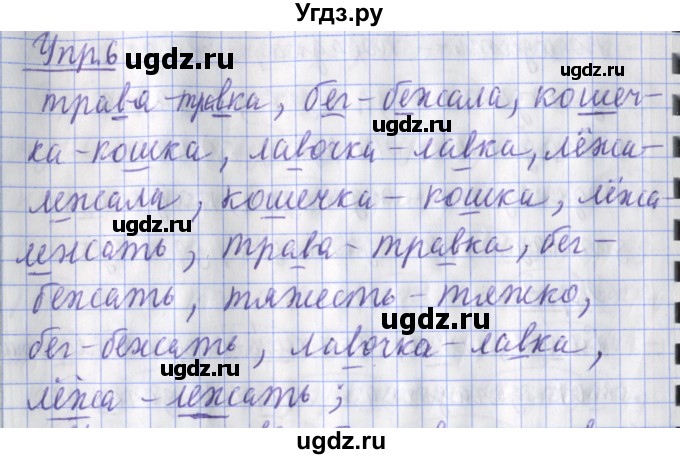 Угдз.ру
Упр.6
ugdz.ru ugdz.ru
трава-травка, бег-бежала, кошеч-
ugdz.ru
ка-кошка, лавочка-лавка, лёжа-
лежала, кошечка-кошка, лёжа
ugdz.ru
лежать, трава-травка, бег-
бежать, тяжесть-тяжко,
ugdz.ru
бег-бежать, лавочка-лавка,
ugdz.ru
лёжа-лежать;
ugdz.ru